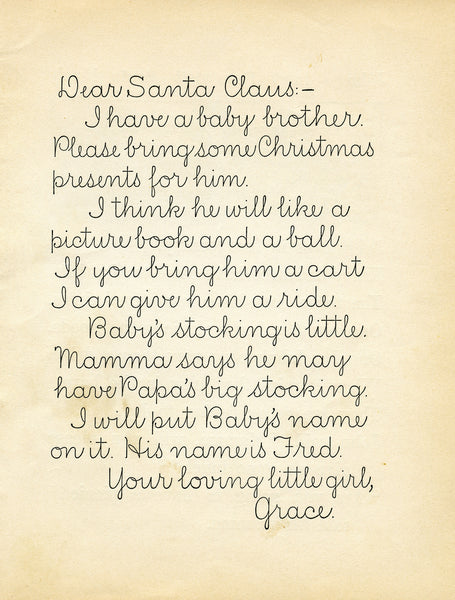 Dear Santa Claus:–
I have a baby brother.
Please bring some Christmas
presents for him.
I think he will like a
picture book and a ball.
If you bring him a cart
I can give him a ride.
Baby's stocking is little.
Mamma says he may
have Papa's big stocking.
I will put Baby's name
on it. His name is Fred.
Your loving little girl,
Grace.